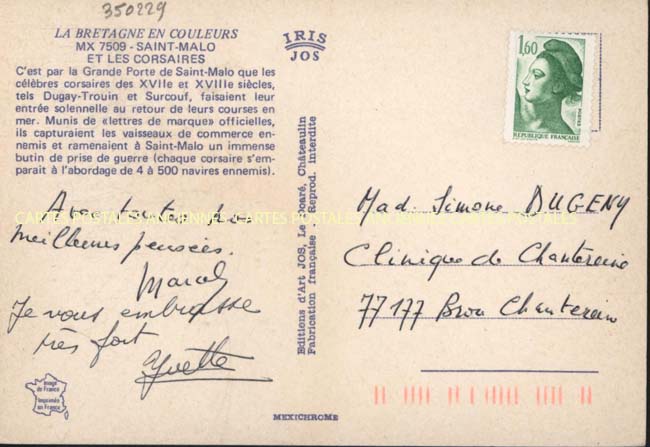 350229
LA BRETAGNE EN COULEURS
MX 7509 - SAINT-MALO
ET LES CORSAIRES
C'est par la Grande Porte de Saint-Malo que les
célèbres corsaires des XVIIe et XVIIIe siècles,
tels Dugay-Trouin et Surcouf, faisaient leur
entrée solennelle au retour de leurs courses en
mer. Munis de «lettres de marque» officielles,
ils capturaient les vaisseaux de commerce en-
nemis et ramenaient à Saint-Malo un immense
butin de prise de guerre (chaque corsaire s'em-
parait à l'abordage de 4 à 500 navires ennemis).
Avec toutes mes
meilleures pensées.
Marcel
Je vous embrasse
très fort
Yvette
Image
de France
Imprimée
en France
IRIS
JOS
Editions d'Art JOS, Le Doaré, Châteaulin
Fabrication française - Reprod. interdite
MEXICHROME
1,60
POSTES
REPUBLIQUE FRANÇAISE
Mad. Simone DUGENY
Clinique de Chantereine
77177 Brou Chanterein
CARTES POSTALES ANCIENNES - CARTES POSTALES